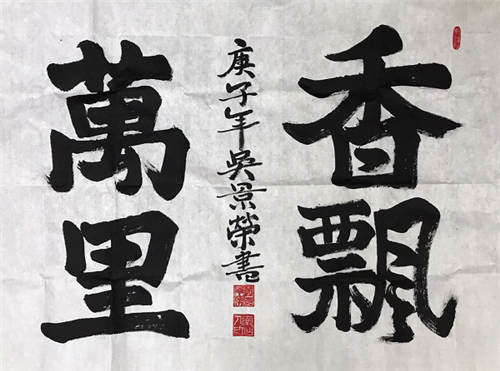 香飄
庚子年吳景榮書
萬里